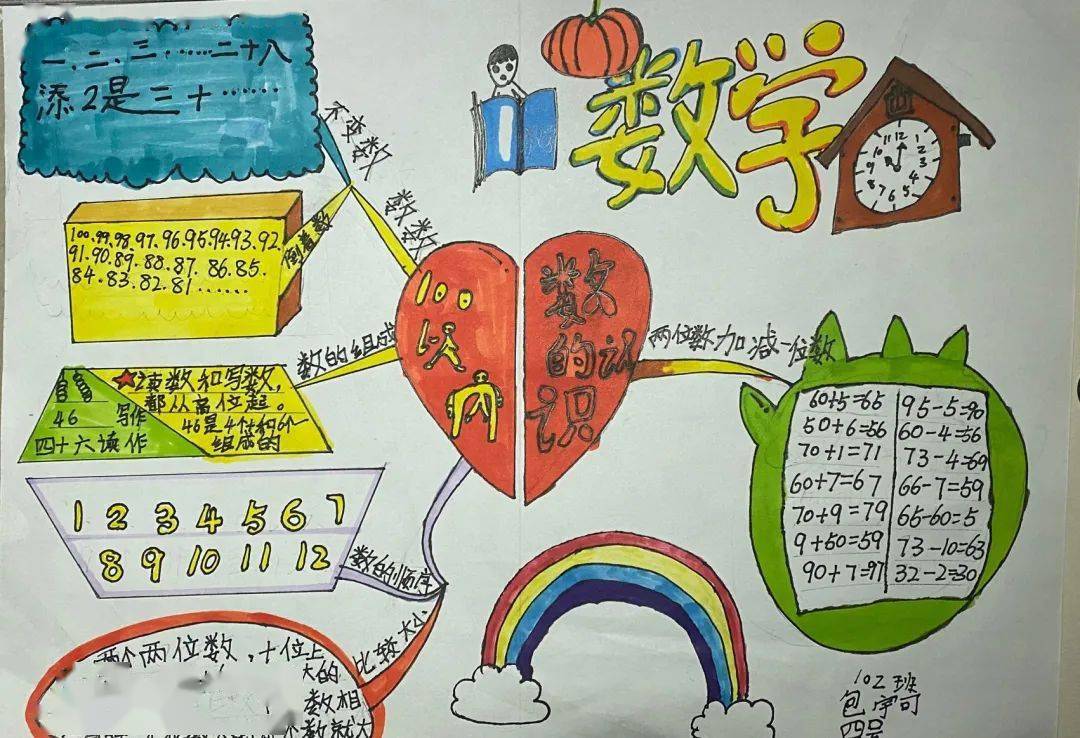 数学
12 1 2 3 4 5 6 7 8 9 10
一、二、三……二十八
添2是三十……
不变数
数数
倒着数
100.99.98.97.96.95.94.93.92.
91.90.89.88.87.86.85.
84.83.82.81……
100
以
内
数
的认
识
数的组成
★读数和写数,
都从高位起。
46是4个十和6个一
组成的
46 写作
四十六读作
数的顺序
1 2 3 4 5 6 7
8 9 10 11 12
比较大小
两个两位数,十位上
大的
数相
个数就大
两位数加减一位数
60+5=65
50+6=56
70+1=71
60+7=67
70+9=79
9+50=59
90+7=97
95-5=90
60-4=56
73-4=69
66-7=59
65-60=5
73-10=63
32-2=30
102班
包宇可
四号